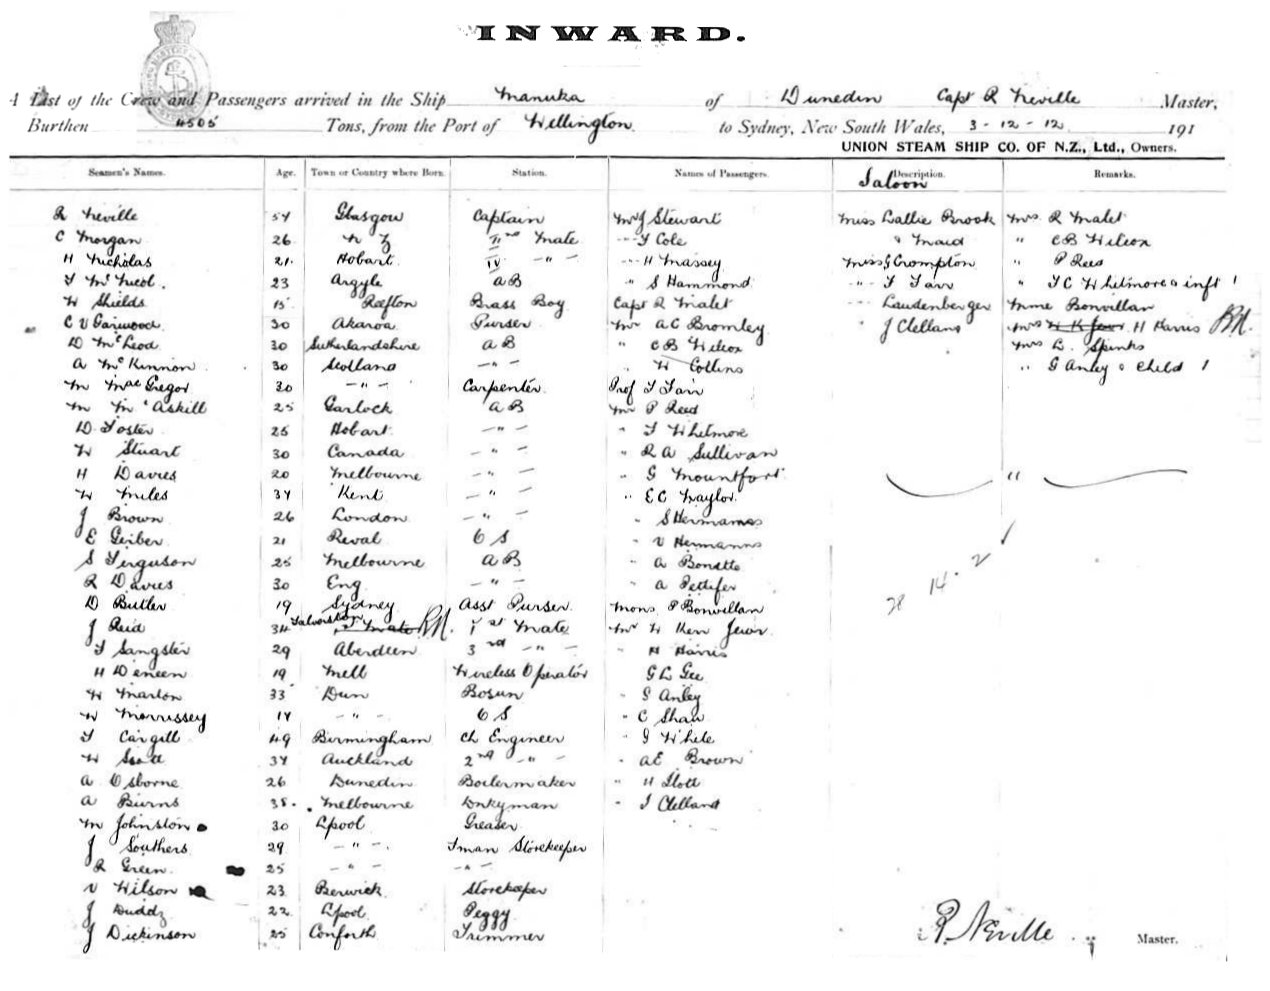 INWARD.
A List of the Crew and Passengers arrived in the Ship Manuka of Dunedin Capt R Neville Master,
Burthen 4505 Tons, from the Port of Wellington to Sydney, New South Wales, 3-12-12 191
UNION STEAM SHIP CO. OF N.Z., Ltd., Owners.
Seamen's Names. Age. Town or Country where Born. Station. Names of Passengers. Description. Remarks.
Saloon
R Neville 54 Glasgow Captain Mr J Stewart Miss Lallie Brook Mrs R Malet
C Morgan 26 N Z IInd Mate -"- F Cole " Maid " C B Wilcox
H Nicholas 21 Hobart IV -"- -"- H Massey Miss G Crompton " P Reed
F McNicol 23 Argyle A B " S Hammond -"- F Farr " F C Whitmore & inft 1
W Shields 15 Reefton Brass Boy Capt R Malet -"- Laudenberger Mme Bonvillan
C V Garwood 30 Akaroa Purser Mr A C Bromley " J Clelland Mrs H Harris
D McLeod 30 Sutherlandshire A B " C B Wilcox Mrs L Spinks
A McKinnon 30 Scotland -"- W Collins " G Anley & Child 1
M MacGregor 30 -"- Carpenter Prof F Farr
M McAskill 25 Garlock A B Mr P Reed
D Foster 25 Hobart -"- " F Whitmore
W Stuart 30 Canada -"- " R A Sullivan
H Davies 20 Melbourne -"- " G Mountfort "
W Miles 34 Kent -"- " E C Naylor
J Brown 26 London -"- " S Hermanns
E Geiber 21 Reval O S " V Hermanns
S Ferguson 25 Melbourne A B " A Bonetto
R Davies 30 Eng -"- " A Pettifer 28 14 . 2
D Butler 19 Sydney Asst Purser Mons P Bonvillan
J Reid 34 Ulverston 1st Mate Mr W Kerr Jeur
F Sangster 29 Aberdeen 3rd -"- " H Harris
H Deneen 19 Melb Wireless Operator G L Gee
W Marlon 33 Dun Bosun " G Anley
W Morrissey 17 -"- O S " C Shaw
F Cargill 49 Birmingham Ch Engineer " G White
W Scott 34 Auckland 2nd -"- " A E Brown
A Osborne 26 Dunedin Boilermaker " H Slott
A Burns 38 Melbourne Dnkyman " J Clelland
M Johnston 30 Lpool Greaser
J Southers 29 -"- Fman Storekeeper
R Green 25 -"- -"-
V Wilson 23 Berwick Storekeeper
J Duddy 22 Lpool Peggy
J Dickinson 25 Conforth Trimmer
R. Neville Master.